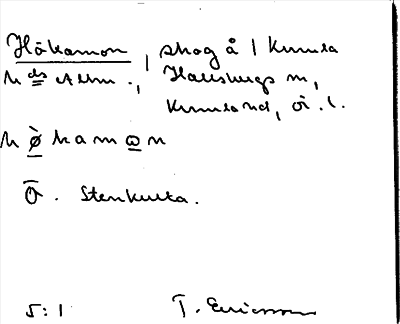 Hökamon, skog å / Kumla
hds Allm., Hallsbergs m,
Kumland, ör. l.
h ø̀ k a m ω n
Ō. Stenkulla.
5:1 T. Ericsson